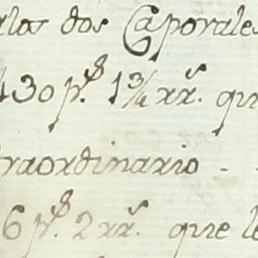 los dos Caporales
430 p.s 1¾ rr.s que
traordinario -
6 p.s 2 rr.s que le